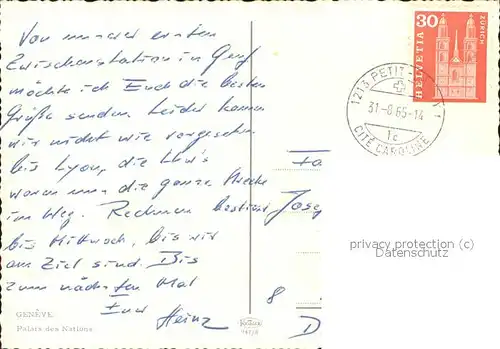 Von unserer ersten
Zwischenstation in Genf
möchte ich Euch die besten
Grüße senden. Leider kamen
wir nicht wie vorgesehen
bis Lyon, die LKW's
waren uns die ganze Strecke
im Weg. Rechnen bestimmt
bis Mittwoch, bis wir
am Ziel sind. Bis
zum nächsten Mal
Euer Heinz
GENÈVE
Palais des Nations
30
HELVETIA
ZÜRICH
1213 PETIT
31-8 65-14
1c
CITÉ CAROLINE
Jose
8
D
privacy protection (c)
Datenschutz